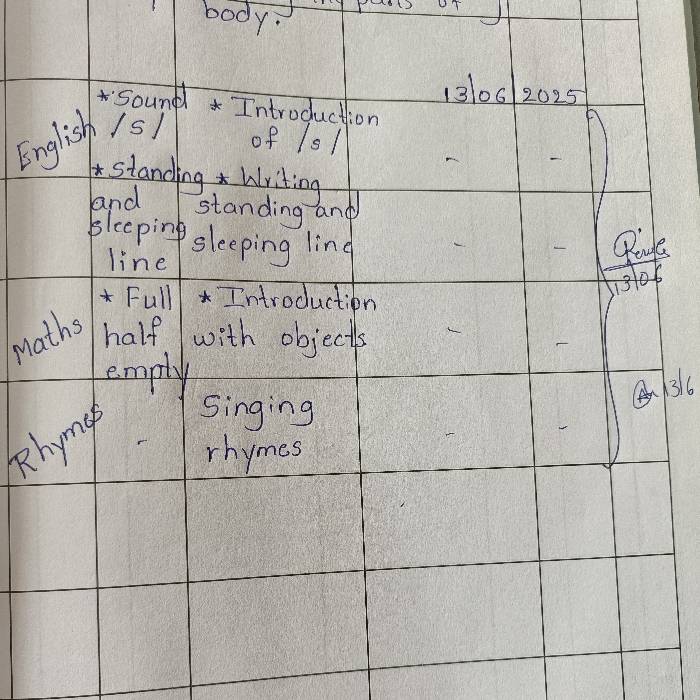 parts of
body.
13/06/2025
English
* Sound /s/
* Introduction of /s/
- -
* Standing and sleeping line
* Writing standing and sleeping line
- -
13/06
Maths
* Full half empty
* Introduction with objects
- -
13/6
Rhymes
-
Singing rhymes
- -